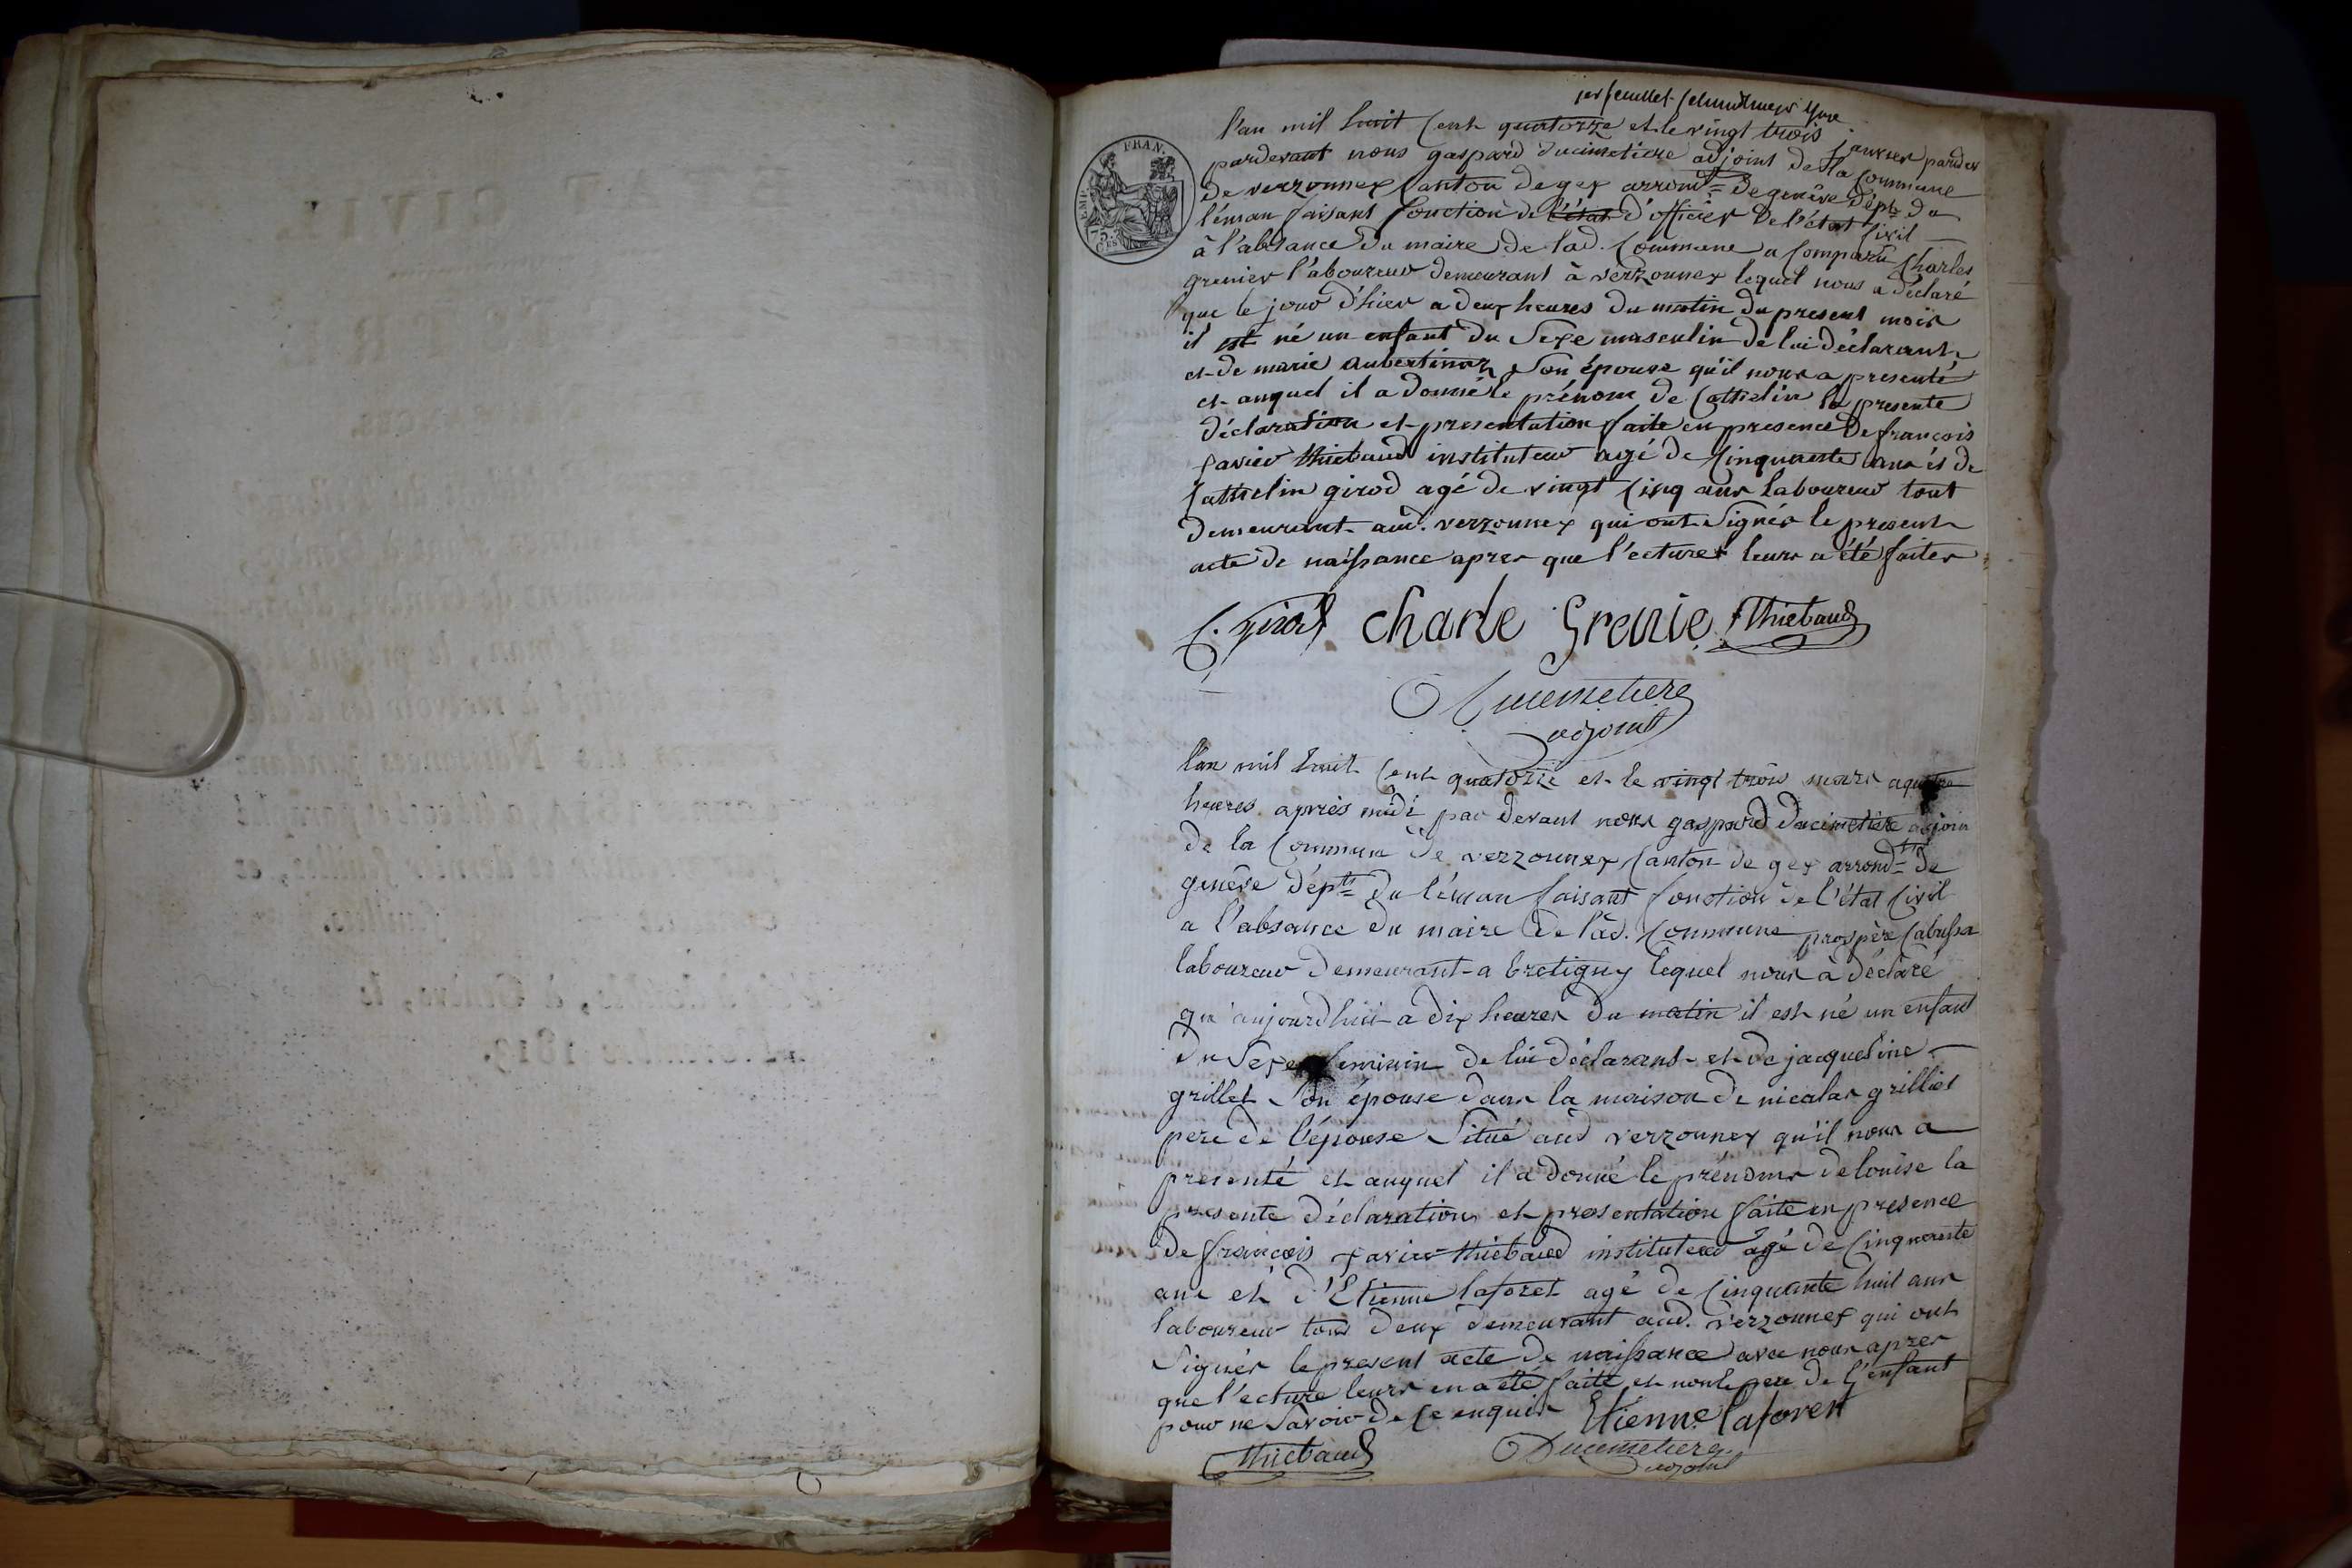 1er feuillet
l'an mil huit cent quatorze et le vingt trois janvier pardev
pardevant nous gaspard ducimetiere adjoint de la Commune
de verzonnex Canton de gex arrondt de genêve dépt du
léman faisant fonction de l'état d'officier de l'état Civil
à l'absance du maire de lad. Commune a Comparu Charles
grenier l'aboureur demeurant à verzonnex lequel nous a déclaré
que le jour d'hier a deux heures du matin du present mois
il est né un enfant du Sexe masculin de lui déclarant
et de marie Son épouse qu'il nous a presenté
et auquel il a donné le prénom de Cattelin la presente
déclaration et presentation faite en presence de françois
xavier thiebaud instituteur agé de Cinquante ans et de
Cattelin girod agé de vingt Cinq ans laboureur tout
demeurant aud. verzonnex qui ont Signés le present
acte de naissance apres que l'ectures leurs a été faites
C. girod charle Grenie thiebaud
Ducimetiere
adjoint
l'an mil huit Cent quatorze et le vingt trois mars a quatre
heures après midi par devant nous gaspard ducimetiere adjoin
de la Commune de verzonnex Canton de gex arrondt de
genêve dépt du léman faisant fonction de l'état Civil
a l'absance du maire de l'ad. Commune prospère Cabussa
laboureur demeurant a bretigny lequel nous à déclaré
qu'aujourdhui a dix heures du matin il est né un enfant
du Sexe feminin de lui déclarant et de jacqueline
grillet Son épouse dans la maison de nicolas grilliet
pere de l'épouse Situé aud verzonnex qu'il nous a
presenté et auquel il a donné le prénoms de louise la
presente déclaration et presentation faite en presence
de françois xavier thiebaud instituteur agé de Cinquante
ans et d'Etienne laforet agé de Cinquante huit ans
laboureur tous deux demeurant aud. verzonnex qui ont
Signés le present acte de naissance avec nous apres
que l'ecture leurs en a été faite et non le pere de l'enfant
pour ne Savoir de Ce enquis Etienne laforest
thiebaud Ducimetiere
adjoint